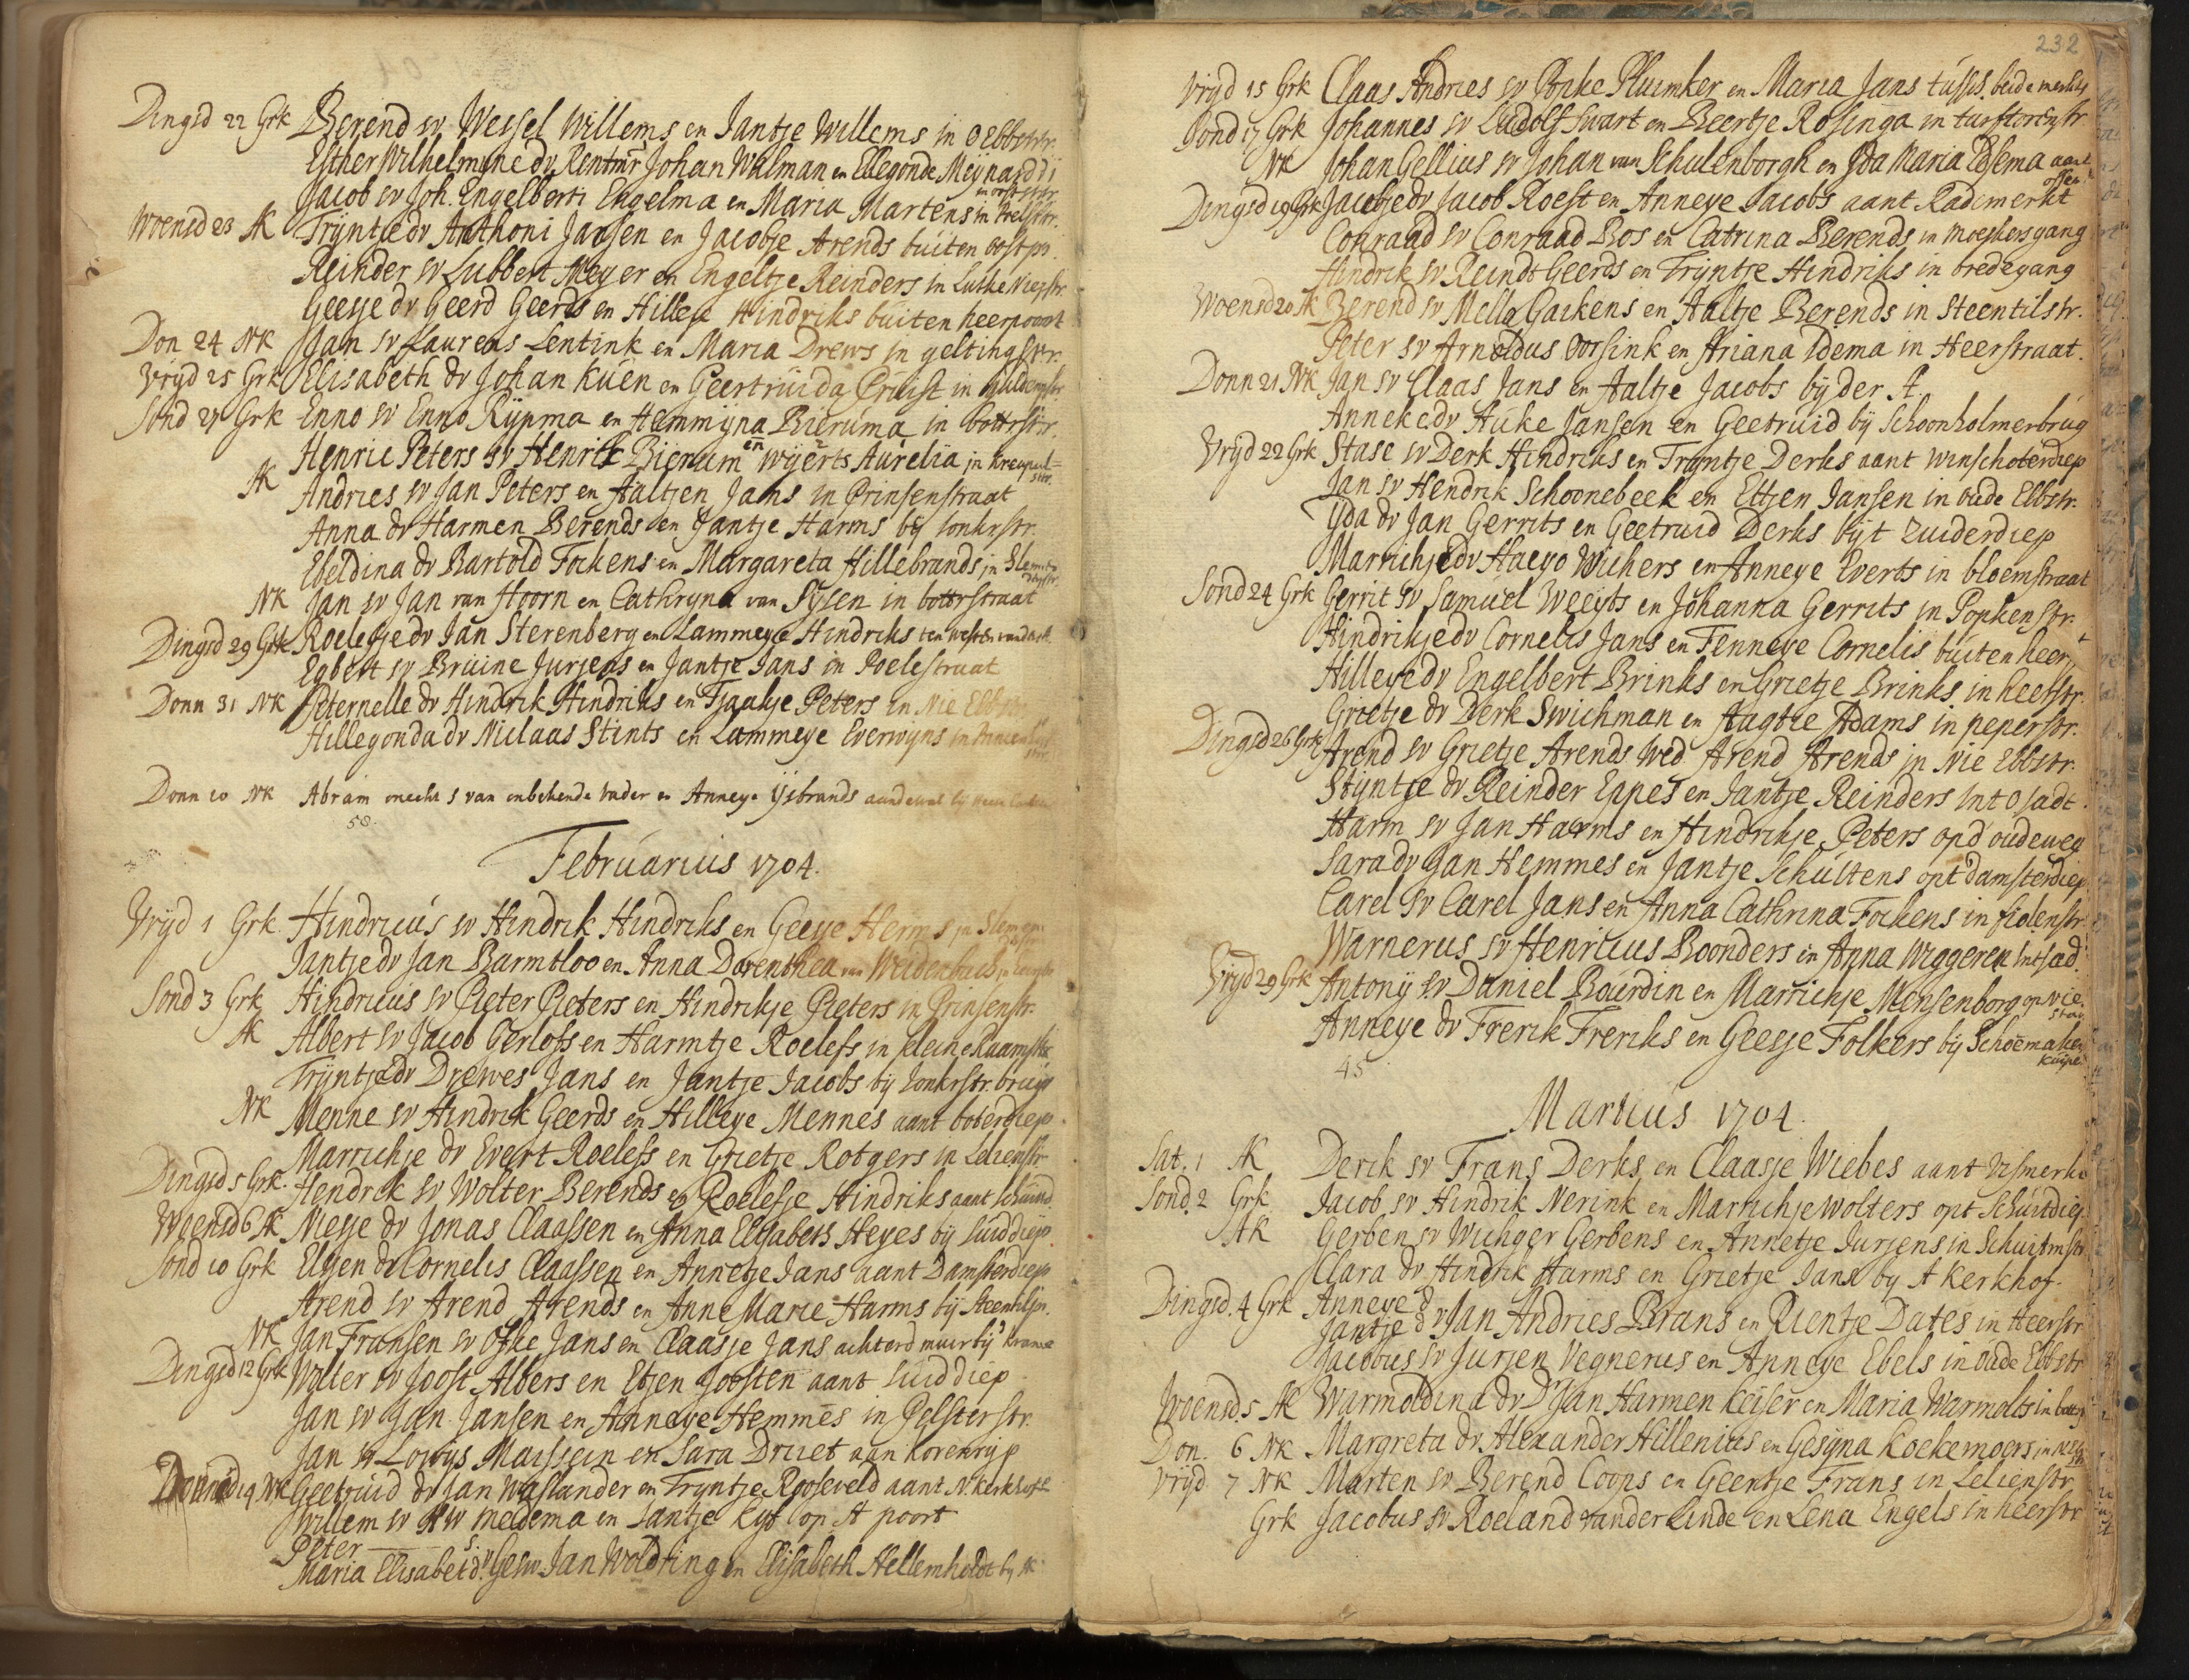 Dingsd 22 Grk Berend sv Wessel Willems en Jantje Willems in O Ebbestr.
Esther Wilhelmine dv Rentmr Johan Walman en Ellegonde Meijnardi
in oostestr
Jacob sv Joh. Engelberti Engelma en Maria Martens in Poelstr.
Woensd 23 AK Trijntje dv Anthoni Jansen en Jacobje Arends buiten oostpr.
Reinder sv Lubbert Meyer en Engeltje Reinders in Lutke Niejstr.
Geesje dv Geerd Geerds en Hilleje Hindriks buiten heerpoort
Don 24 NK Jan sv Laurens Lentink en Maria Drews in geltingstr.
Vrijd 25 Grk Elisabeth dv Johan Kuen en Geertruida Pruist in
Sond 27 Grk Enno sv Enno Rijpma en Hemmijna Bieruma in bottrstr.
Henric Peters sv Henrik Bierum en Wijerts Aurelia in Kreupel=
str.
AK Andries sv Jan Peters en Aaltjen Jans in Prinsenstraat
Anna dv Harmen Berends en Jantje Harms bij Jonkrstr.
Ebeldina dv Bartold Fockens en Margareta Hillebrands in
NK Jan sv Jan van Hoorn en Cathryna van Sysen in botterstraat
Dingsd 29 Grk Roelefje dv Jan Sterenberg en Lammeye Hindriks ten westen
Egbert sv Bruine Jurjens en Jantje Jans in Poelestraat
Donn 31 NK Peternelle dv Hindrik Hindriks en Tjaakje Peters in Nie Ebbestr
Hillegonda dv Niclaas Stints en Lammeye Everwijns in
Donn 10 NK Abram onecht s van onbekende Vader en Anneye Ijsbrands
58.
Februarius 1704.
Vrijd 1 Grk Hindricus sv Hindrik Hindriks en Geeye Herms in
Jantje dv Jan Barmtloo en Anna Dorenthea van Weidenbuch
Sond 3 Grk Hindricus sv Pieter Pieters en Hindrikje Pieters in Prinsenstr.
AK Albert sv Jacob Gerlofs en Harmtje Roelefs in kleine Raamstr
Trijntje dv Drewes Jans en Jantje Jacobs bij Jonkrstr. brug
NK Menne sv Hindrik Geerds en Hilleye Mennes aant boterdiep.
Marrichje dv Evert Roelefs en Grietje Rotgers in Lelienstr
Dingsd 5 Grk. Hendrik sv Wolter Berends en Roelefje Hindriks aant Schuitd.
Woensd 6 AK Niesje dv Jonas Claassen en Anna Elisabets Heyes bij Suiddiep.
Sond 10 Grk Eltjen dv Cornelis Claassen en Annetje Jans aant Damsterdiep
Arend sv Arend Arends en Anne Marie Harms bij Steentilpr.
NK Jan Fransen sv Ofke Jans en Claasje Jans achterd muir bij d' Krane
Dingsd 12 Grk Wolter sv Joost Albers en Etjen Joosten aant Suiddiep
Jan sv Jan Jansen en Anneye Hemmes in Pelsterstr.
Jan sv Lowys Maissein en Sara Druet aan Korenrijp
Donnd 14 NK Geetruid dv Jan Waslander en Trijntje Rooseveld aant N. Kerkhoff
Willem sv Meldema en Jantje Kijt op A poort
Peter s.
Maria Elisabet d. v Gesw. Jan Woldring en Elisabeth Hellemholdt bij A
232
Vrijd 15 Grk Claas Andries sv Popke Pluimker en Maria Jans tússch. beide merkt
Sond 17 Grk Johannes sv Ludolf Swart en Beertje Rosinga in turftorenstr
NK Johan Gellius sv Johan van Schulenborgh en Yda Maria Edsema aant
Dingsd 19 Grk Jacobje dv Jacob Roest en Anneye Jacobs aant Radimerkt
Conraad sv Conraad Bos en Catrina Berends in moeskersgang
Hindrik sv Reindt Geerds en Trijntje Hindriks in bredegang
Woensd 20 AK Berend sv Melle Gaikens en Aaltje Berends in Steentilstr.
Peter sv Arnoldus Oorsink en Ariana Idema in Heerstraat.
Donn 21 NK Jan sv Claas Jans en Aaltje Jacobs bij der A.
Anneke dv Auke Jansen en Geetruid bij Schoonholmerbrug
Vrijd 22 Grk Stase sv Derk Hindriks en Trijntje Derks aant Winschoterdiep
Jan sv Hendrik Schoonebeek en Eltjen Jansen in oude Ebbstr.
Yda dv Jan Gerrits en Geetruid Derks bijt Zuiderdiep
Marrichje dv Haeyo Wichers en Anneye Everts in bloemstraat
Sond 24 Grk Gerrit sv Samuel Weeyts en Johanna Gerrits in Popkenstr.
Hindrikje dv Cornelis Jans en Fenneye Cornelis buiten heerp
Hilleye dv Engelbert Brinks en Grietje Brinks in heerstr.
Grietje dv Derk Swichman en Aagtie Adams in peperstr.
Dingsd 26 Grk Arend sv Grietje Arends Wed Arend Arends in Nie Ebbstr.
Stijntje dv Reinder Eppes en Jantje Reinders Int O Sadt.
Harm sv Jan Harms en Hindrikje Peters opd oudeweg
Sara dv Jan Hemmes en Jantje Schultens opt damsterdiep
Carel sv Carel Jans en Anna Cathrina Fockens in fiolenstr
Warnerus sv Henricus Boonders en Anna Wiggeren Int Sad.
Vrijd 29 Grk Antonij sv Daniel Bourdin en Marrichje Mensenborg op vie
Anneye dv Frerik Freriks en Geesje Folkers bij Schoemaken
Kuipe
45
Martius 1704.
Sat. 1 AK Derik sv Frans Derks en Claasje Wiebes aant Vismerkt
Sond. 2 Grk Jacob sv Hindrik Nerink en Marrichje Wolters opt Schuitdiep
AK Gerben sv Wichger Gerbens en Annetje Jurjens in Schuitmstr.
Clara dv Hindrik Harms en Grietje Jans by A Kerkhof.
Dingsd. 4 Grk Anneye d
Jantje d v Jan Andries Brans en Rientje Dates in Heerstr
Jacobus sv Jurjen Vegnerus en Anneye Ebels in oude Ebbstr
Woensd 5 AK Warmoldina dv Dr Jan Harmen Keiser en Maria Warmolts in
Don. 6 NK Margreta dv Alexander Hillenius en Gesijna Koekemoers in
Vrijd 7 NK Marten sv Berend Coops en Geertje Frans in Lelienstr
Grk Jacobus sv Roeland vander Linde en Lena Engels in heerstr